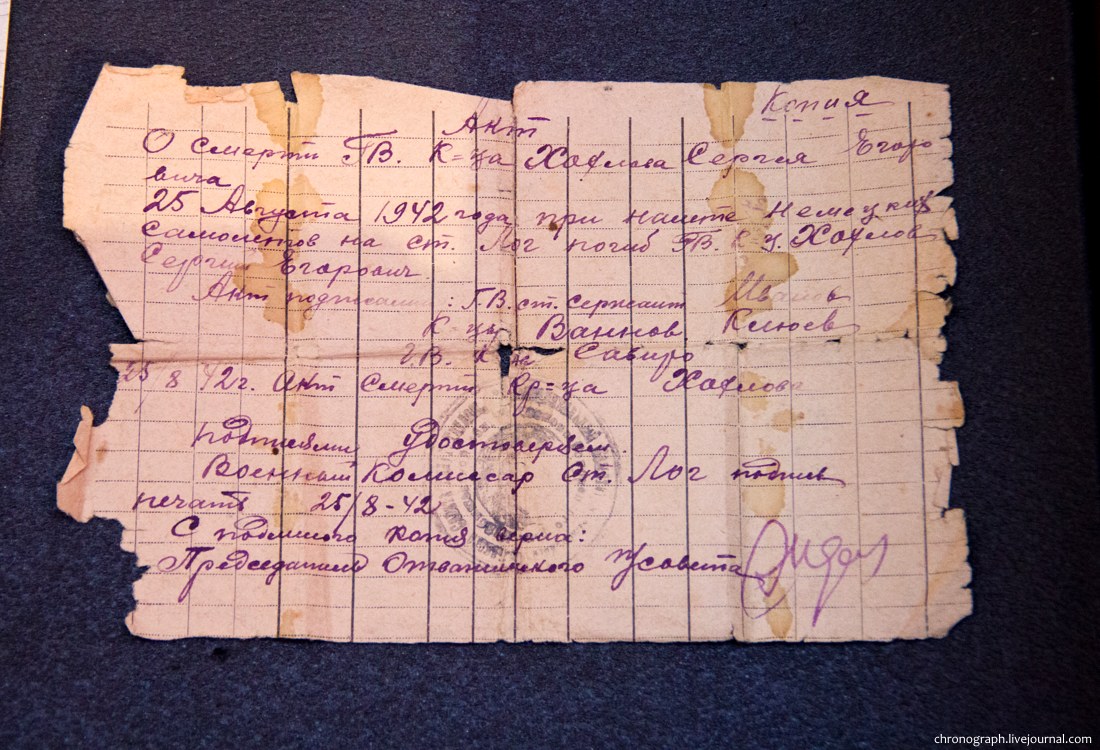 Копия
Акт
О смерти ГВ. К=ца Хохлова Сергея Егоро
вича
25 Августа 1942 года при налете Немецких
самолетов на ст. Лог погиб ГВ. К-ц. Хохлов
Сергей Егорович.
Акт подписали: Г.В. ст. сержант
К-цы Ваннов Клюев
Г.В. К Сабиро
25/8 42г. Акт Смерти Кр=ца Хохлова
подписями удостоверяем.
Военный Комиссар Ст. Лог подпись
печать 25/8-42
С подлинного копия верна:
Председатель с/совета
chronograph.livejournal.com